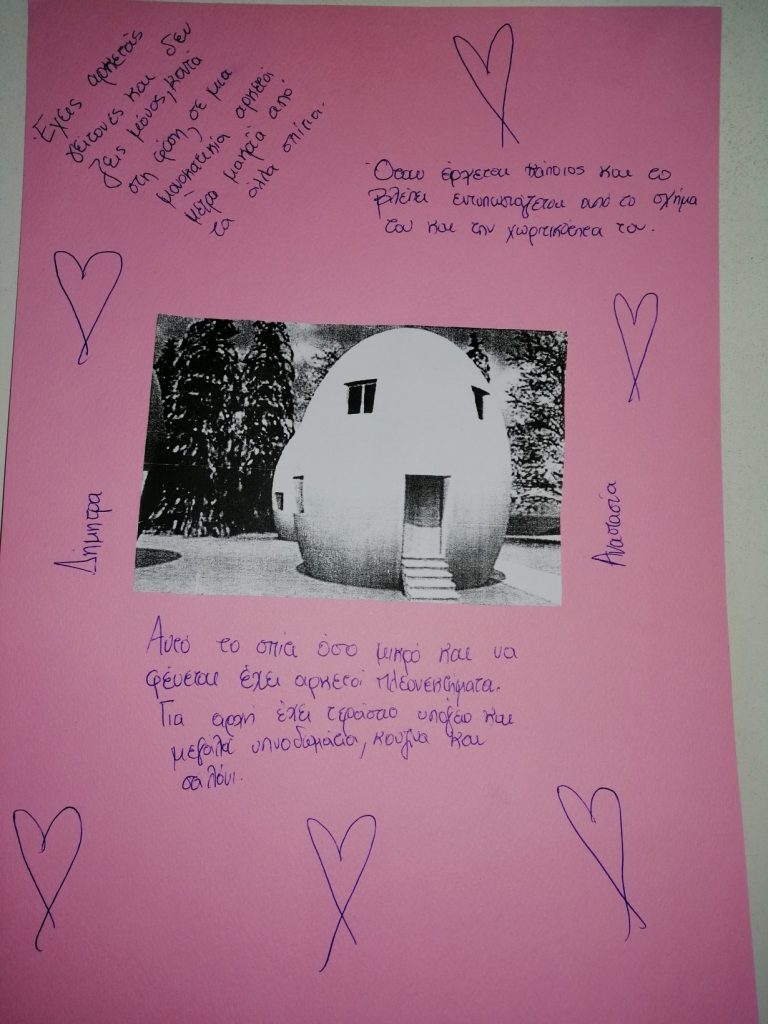 Έχεις αρκετούς
γείτονές και δεν
ζεις μόνος, κοντά
στη φύση, σε μια
μονοκατοικία αρκετά
μέτρα μακρϊα από
τα άλλα σπίτια.
Όταν έρχεται κάποιος και το
βλέπει εντυπωσιάζεται από το σχήμα
του και την χωρτικότητα του.
Δήμητρα
Αναστασία
Αυτό το σπίτι όσο μικρό και να
φένεται έχει αρκετά πλεονεκτήματα.
Για αρχή έχει τεράστιο υπόγειο και
μεγάλα υπνοδωμάτια, κουζίνα και
σαλόνι.